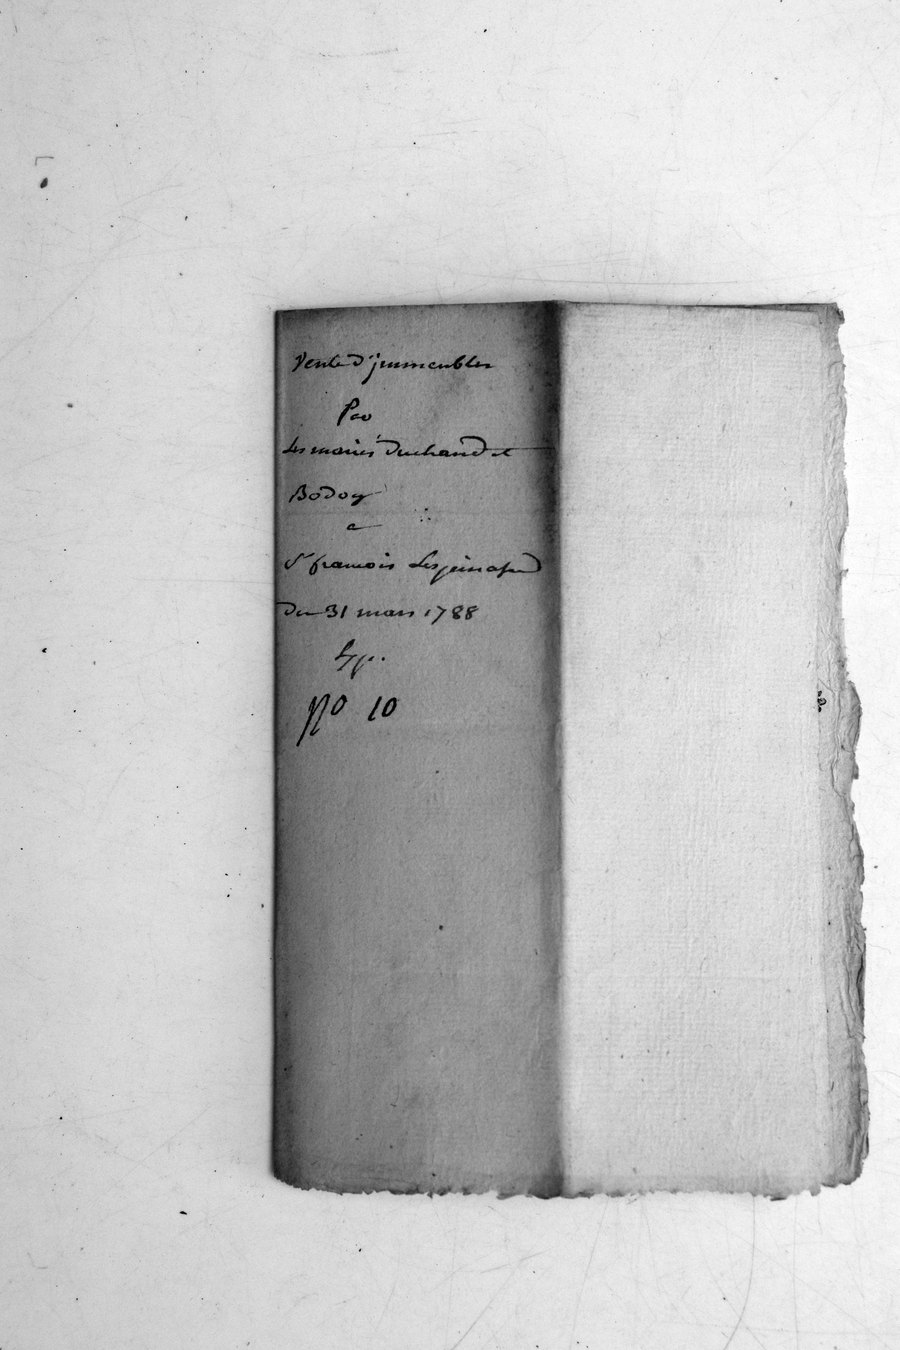 Vente d'jmmeubles
Par
Les mariés Duchand et
Bodoy
a
Sr francois Lespinasse
du 31 mars 1788
No 10